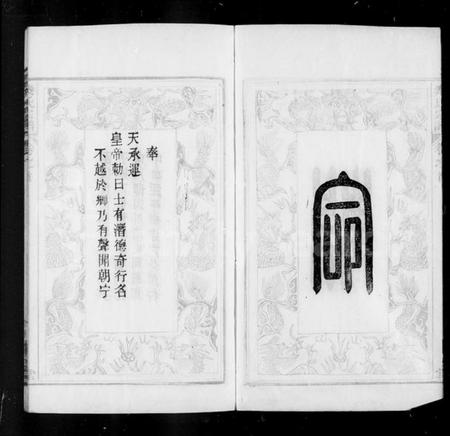 命
奉
天承運
皇帝勅曰士有潛德奇行名
不越於鄉乃有聲聞朝宁